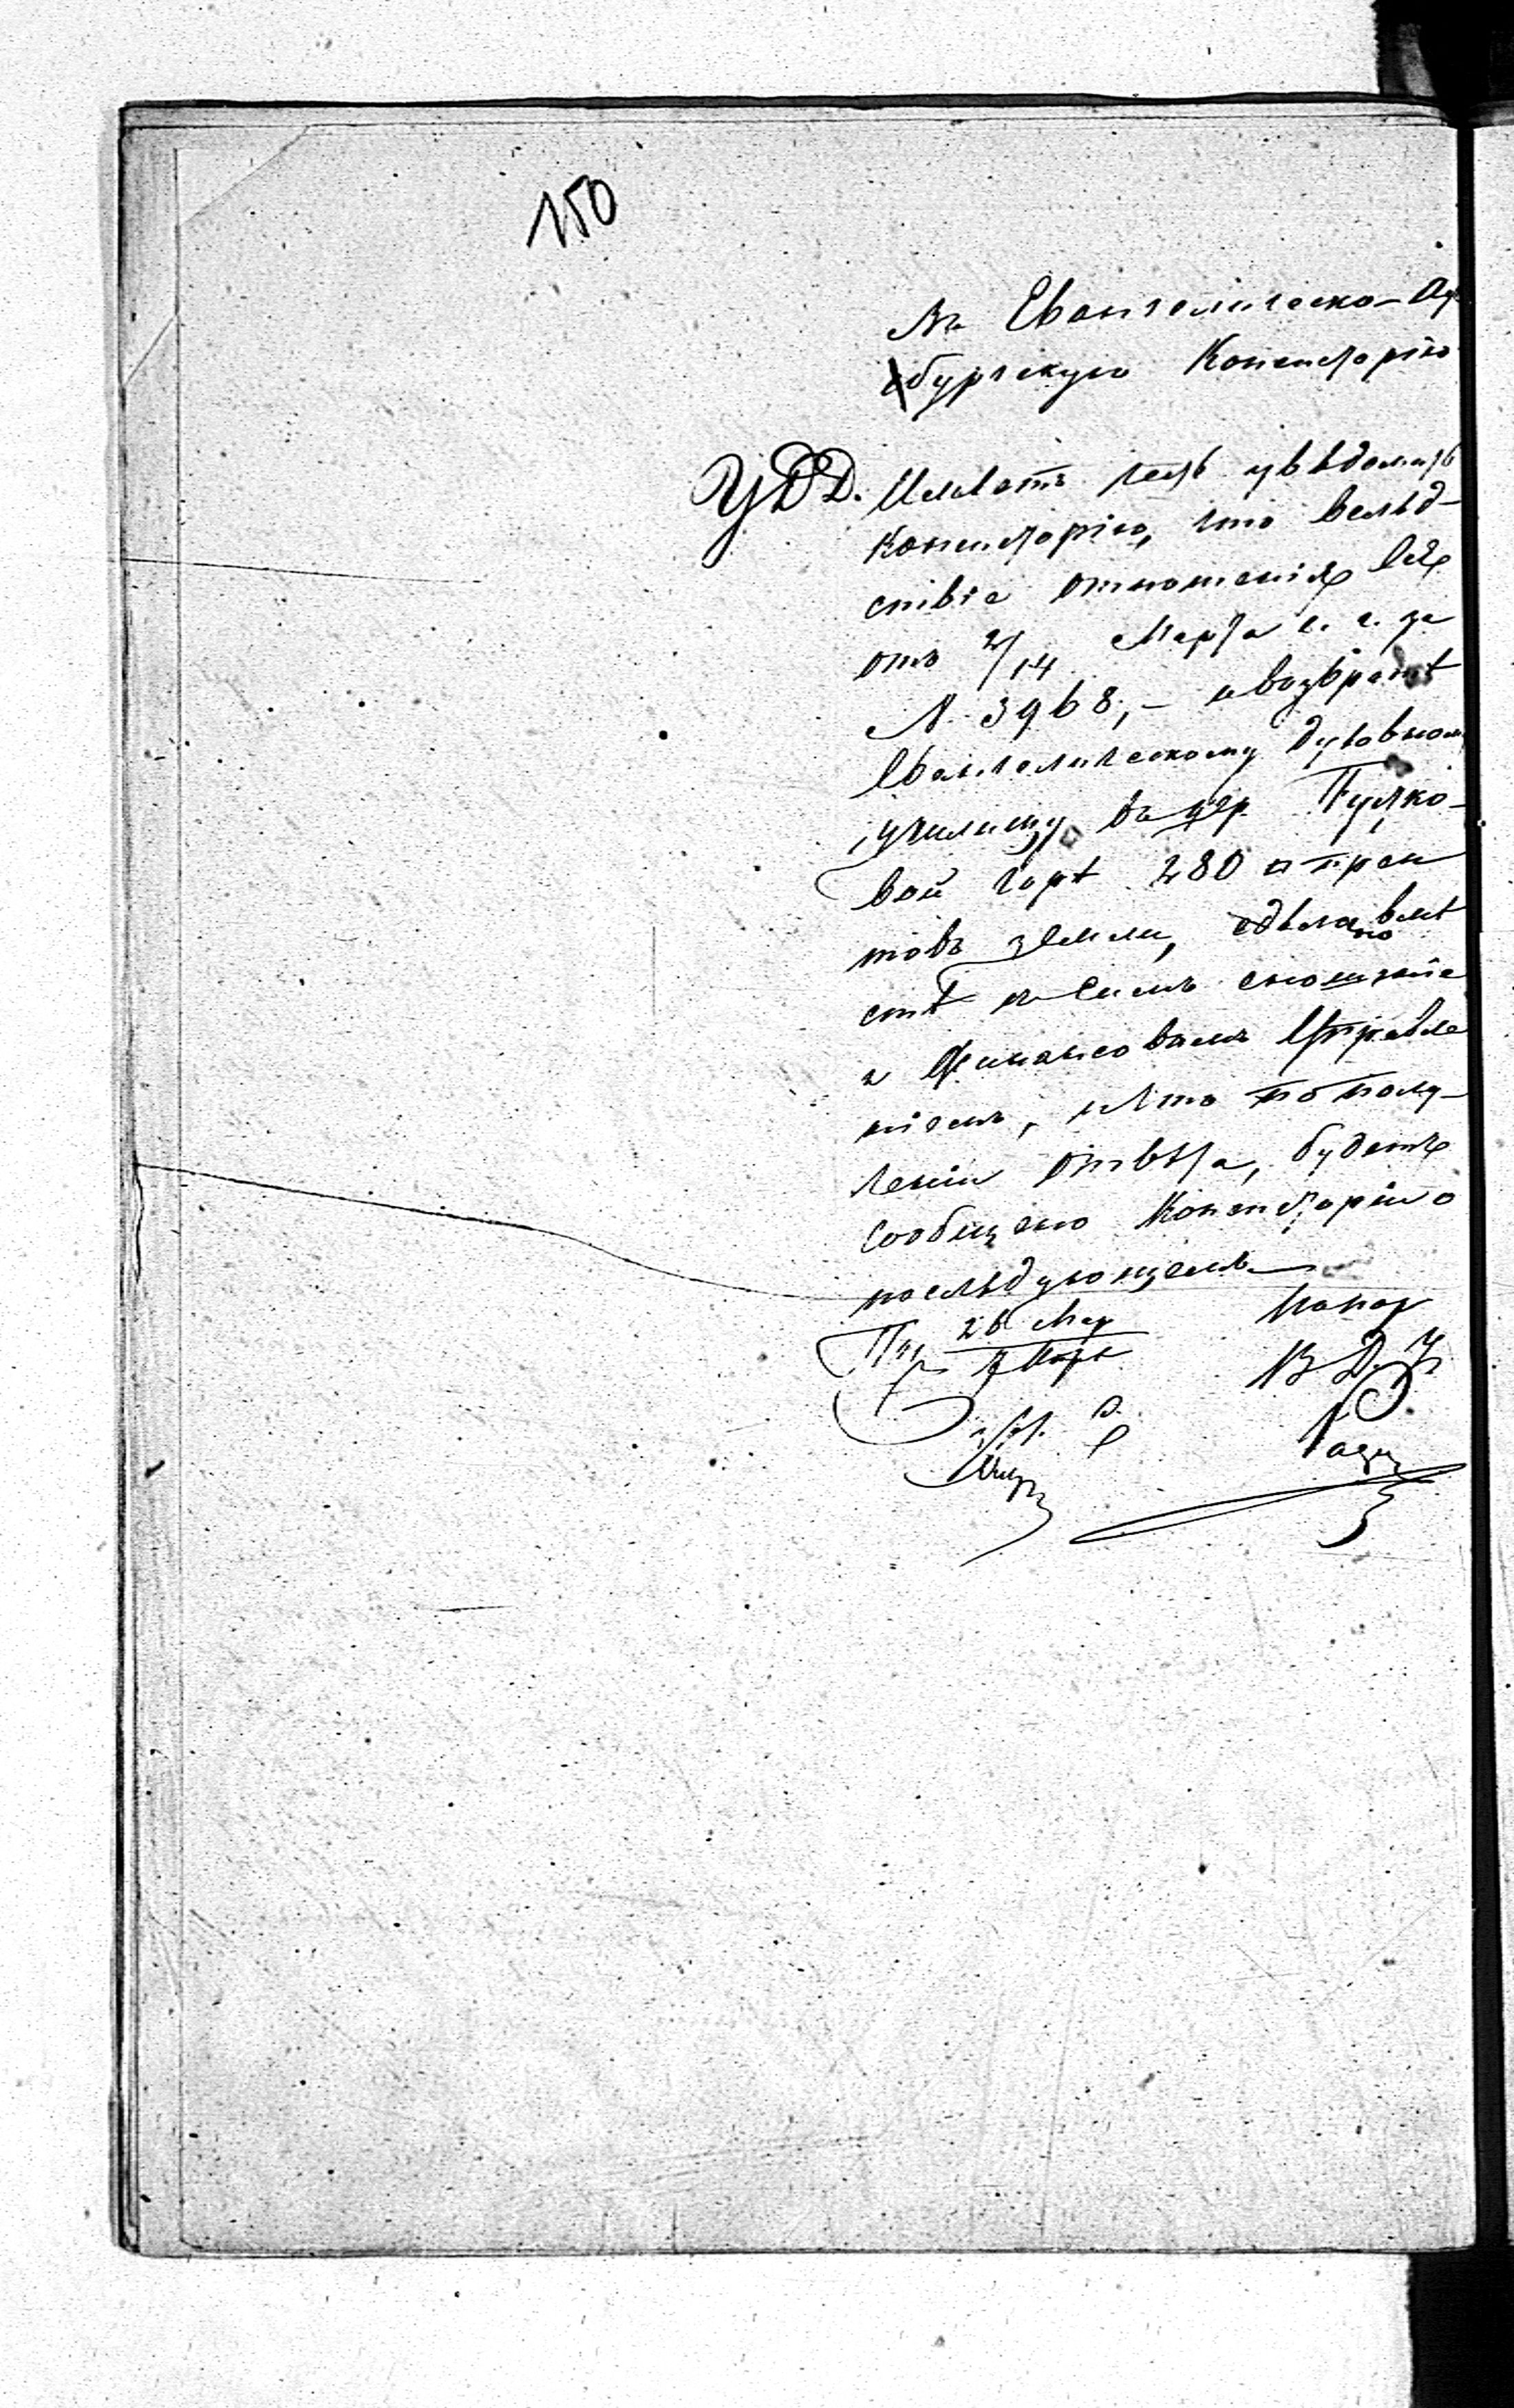 150
Въ Евангелическо-Ауг
сбургскую Консисторію
УДД. Имѣетъ честь увѣдомить
Консисторію, что вслѣд-
ствіе отношенія Ея
отъ 2/14 Марта с. г. за
№ 3968, – о возвратѣ
Евангелическому духовному
училищу въ дер. Пустко-
вой Горѣ 280 □ прен
товъ земли, сдѣлано вмѣ
стѣ съ симъ сношеніе
съ Финансовымъ Управле
ніемъ, и что по полу-
ченіи отвѣта, будетъ
сообщено Консисторіи о
послѣдующемъ
26 Мар
7 Апр